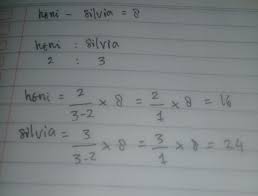 heni - silvia = 8
heni : silvia
2 : 3
heni = 2/3-2 x 8 = 2/1 x 8 = 16
silvia = 3/3-2 x 8 = 3/1 x 8 = 24